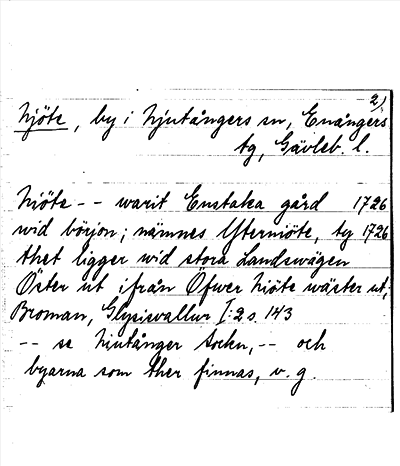 2)
Njöte, by i Njutångers sn, Enångers
tg, Gävleb. l.
Niöte - - warit Enstaka gård 1726
wid börjon; nämnes Yterniöte, ty 1726
thet ligger wid stora Landswägen
Öster ut ifrån Öfwer Niöte wäster ut,
Broman, Glysisvallur I: 2 s. 143
-- se Njutånger socken, -- och
byarna som ther finnas, v. g.